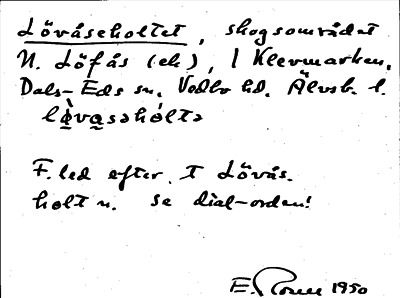 Lövåseholtet, skogsområdet
N. Löfås (ek), I Klevmarken,
Dals-Eds sn, Vedbo hd. Älvsb. l.
lǜvasəhóltə
F.led efter T Lövås.
holt n. se dial-orden!
E. 1950